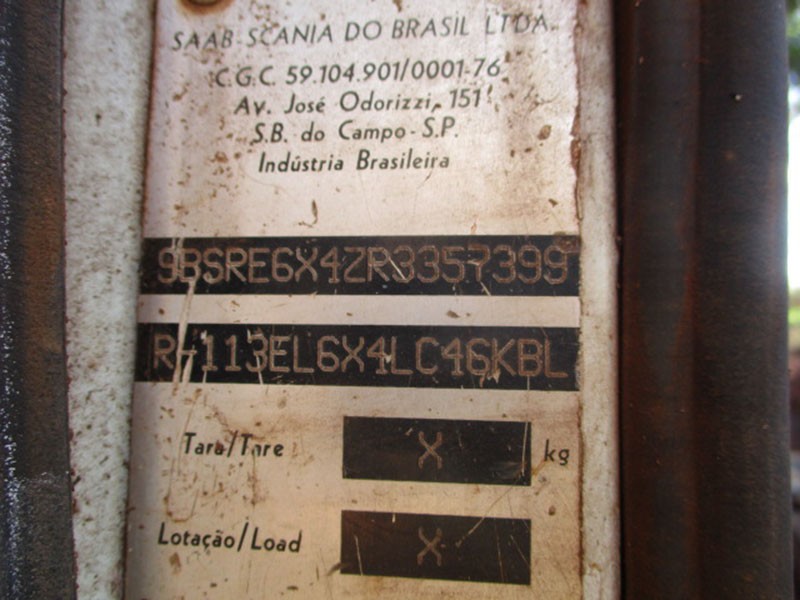 SAAB-SCANIA DO BRASIL LTDA.
C.G.C. 59.104.901/0001-76
Av. José Odorizzi, 151
S.B. do Campo - S.P.
Indústria Brasileira
9BSRE6X4ZR3357399
R-113EL6X4LC46KBL
Tara/Tare X kg
Lotação/Load X